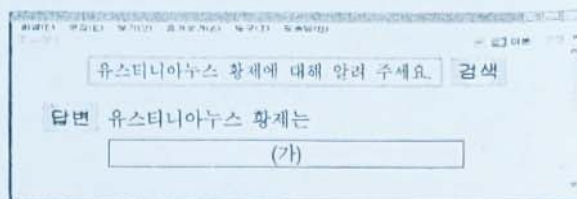 유스티니아누스 황제에 대해 알려 주세요. 검색
답변 유스티니아누스 황제는
(가)